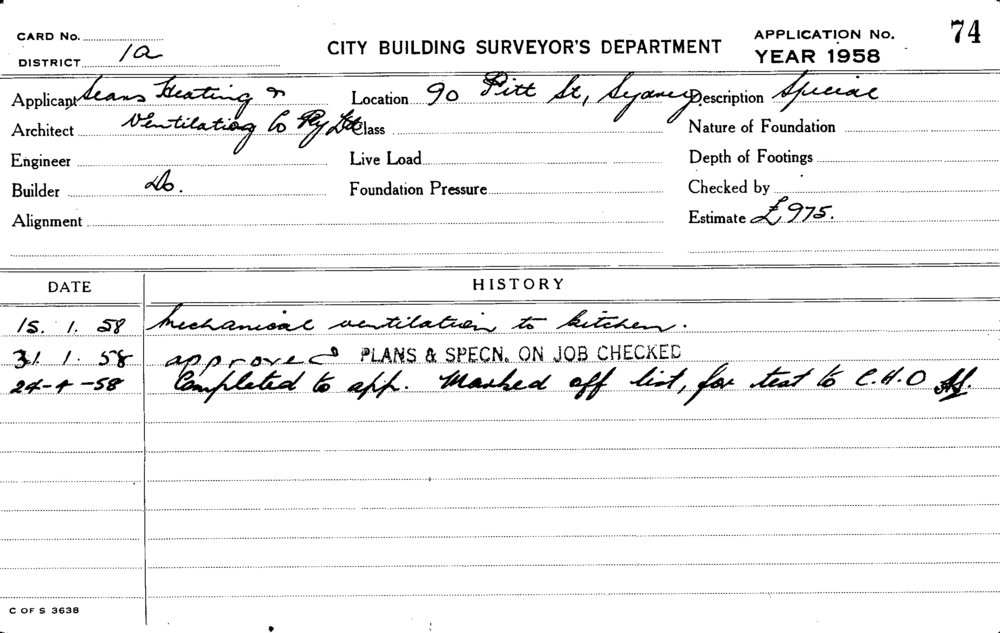 CARD No. CITY BUILDING SURVEYOR'S DEPARTMENT APPLICATION No. 74
DISTRICT 1a YEAR 1958
Applicant Sears Heating & Location 90 Pitt St, Sydney Description Special
Architect Ventilating Co Pty Ltd Class Nature of Foundation
Engineer Live Load Depth of Footings
Builder Do. Foundation Pressure Checked by
Alignment Estimate £975.
DATE HISTORY
15. 1. 58 Mechanical ventilation to kitchen.
31 1. 58 approved PLANS & SPECN. ON JOB CHECKED
24-4-58 Completed to app. Marked off list, for test to C.H.O
C OF S 3638